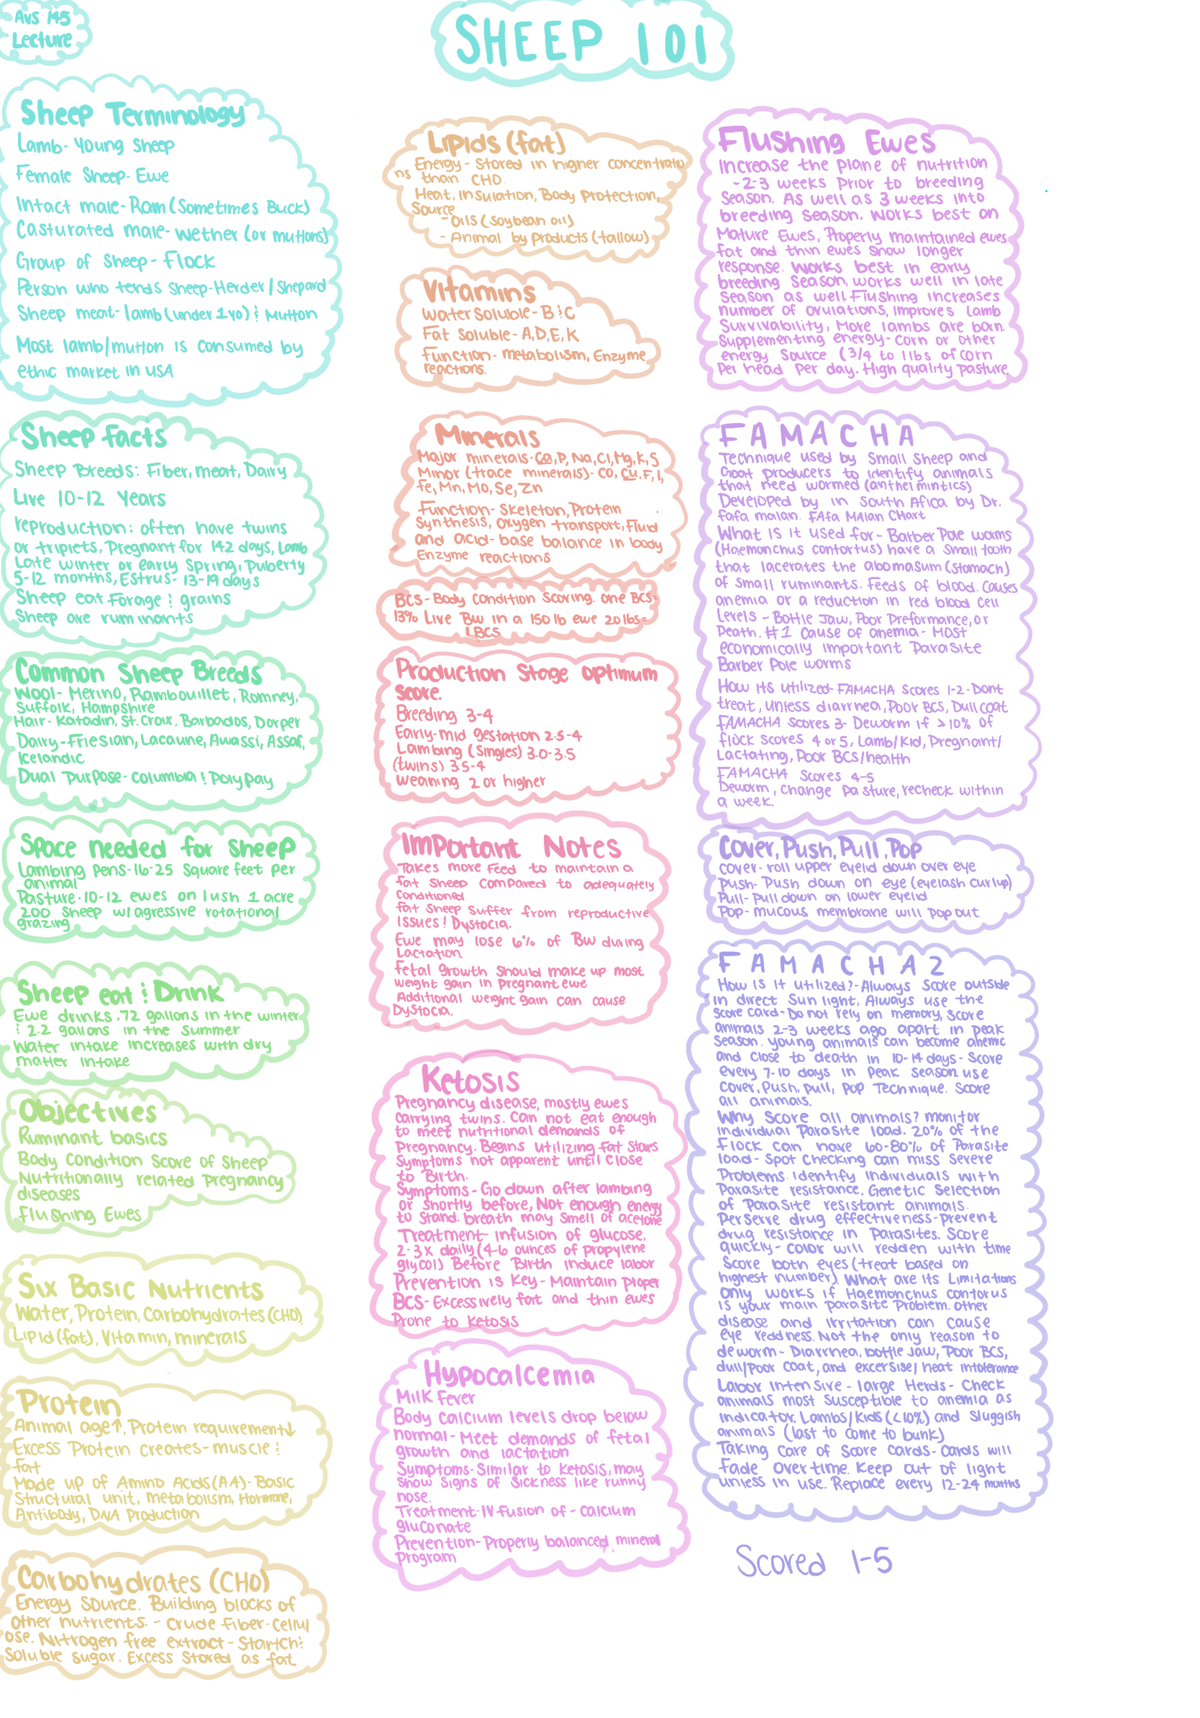 Avs 145
Lecture
SHEEP 101
Sheep Terminology
Lamb- Young Sheep
Female Sheep- Ewe
Intact male- Ram (Sometimes Buck)
Casturated male- wether (or muttons)
Group of Sheep- Flock
Person who tends Sheep-Herder/Shepard
Sheep meat- lamb (under 1yo) & Mutton
Most lamb/mutton is consumed by
ethic market in USA
Sheep Facts
Sheep Breeds: Fiber, meat, Dairy
Live 10-12 Years
reproduction: often have twins
or triplets, Pregnant for 142 days, Lamb
Late winter or early Spring, Puberty
5-12 months, Estrus- 13-19 days
Sheep eat Forage & grains
Sheep are ruminants
Common Sheep Breeds
Wool- Merino, Rambouillet, Romney,
Suffolk, Hampshire
Hair- Katadin, St. Croix, Barbados, Dorper
Dairy-Friesian, Lacaune, Awassi, Assaf,
Icelandic
Dual Purpose- Columbia & Polypay
Space needed for Sheep
Lambing Pens- 16-25 Square feet Per
animal
Pasture- 10-12 ewes on lush 1 acre
200 Sheep w/ agressive rotational
grazing
Sheep eat & Drink
Ewe drinks .72 gallons in the winter
& 2.2 gallons in the Summer
Water intake increases with dry
matter intake
Objectives
Ruminant basics
Body Condition Score of Sheep
Nutritionally related Pregnancy
diseases
Flushing Ewes
Six Basic Nutrients
Water, Protein, Carbohydrates (CHO),
Lipid (fat), Vitamin, minerals
Protein
Animal age↑, Protein requirement↓
Excess Protein creates-muscle &
fat
Made up of Amino Acids (AA)- Basic
Structural unit, metabolism, Hormone,
Antibody, DNA Production
Carbohydrates (CHO)
Energy Source. Building blocks of
other nutrients. - Crude fiber- cellul
ose. Nitrogen free extract- Startch &
Soluble Sugar. Excess Stored as fat
Lipids (fat)
Energy- Stored in higher concentratio
ns than CHO.
Heat, insulation, Body Protection,
Source
-Oils (Soybean oil)
- Animal by products (tallow)
Vitamins
Water Soluble- B & C
Fat Soluble- A, D, E, K
Function- metabolism, Enzyme
reactions.
Minerals
Major minerals- Ca, P, Na, Cl, Mg, K, S
Minor (trace minerals)- CO, Cu, F, I,
Fe, Mn, Mo, Se, Zn
Function- Skeleton, Protein
Synthesis, Oxygen transport, Fluid
and acid-base balance in body
Enzyme reactions
BCS- Body Condition Scoring. one BCS-
13% Live BW in a 150 lb ewe 20 lbs-
1 BCS
Production Stage optimum
Score.
Breeding 3-4
Early-mid gestation 2.5-4
Lambing (Singles) 3.0-3.5
(twins) 3.5-4
Weaning 2 or higher
Important Notes
Takes more Feed to maintain a
fat Sheep Compared to adequately
conditioned
fat Sheep Suffer from reproductive
issues! Dystocia.
Ewe may lose 6% of BW during
Lactation
Fetal growth Should make up most
weight gain in Pregnant ewe
Additional weight gain can cause
Dystocia.
Ketosis
Pregnancy disease, mostly ewes
Carrying twins. Can not eat enough
to meet nutritional demands of
Pregnancy. Begins utilizing fat Stores
Symptoms not apparent until Close
to Birth.
Symptoms- Go down after lambing
or shortly before, Not enough energy
to Stand. breath may Smell of acetone
Treatment- infusion of glucose.
2-3x daily (4-6 ounces of Propylene
glycol) Before Birth induce labor
Prevention is Key- Maintain Proper
BCS- Excessively fat and thin ewes
Prone to Ketosis
Hypocalcemia
Milk Fever
Body calcium levels drop below
normal- Meet demands of fetal
growth and lactation
Symptoms- Similar to Ketosis, may
Show Signs of Sickness like runny
nose.
Treatment- IV fusion of - calcium
gluconate
Prevention- Properly balanced mineral
Program
Flushing Ewes
Increase the plane of nutrition
-2-3 weeks Prior to breeding
Season. As well as 3 weeks into
breeding Season. Works best on
Mature Ewes, Properly maintained ewes
fat and thin ewes Show longer
response. Works best in early
breeding Season, works well in late
Season as well Flushing increases
number of ovulations, improves Lamb
Survivability, More lambs are born.
Supplementing energy- Corn or other
energy Source (3/4 to 1 lbs of Corn
Per head Per day. High quality Pasture
FAMACHA
Technique used by Small Sheep and
Goat producers to identify animals
that need wormed (anthelmintics)
Developed by in South Africa by Dr.
fafa malan. FAfa MAlan Chart
What is it used for- Barber Pole worms
(Haemonchus contortus) have a Small tooth
that lacerates the abomasum (stomach)
of Small ruminants. Feeds of blood. Causes
anemia or a reduction in red blood cell
Levels - Bottle Jaw, Poor Preformance, or
Death. #1 Cause of anemia- Most
economically important Parasite
Barber Pole worms
How its utilized- FAMACHA Scores 1-2- Dont
treat, unless diarrhea, Poor BCS, Dull coat
FAMACHA Scores 3- Deworm if >10% of
flock Scores 4 or 5, Lamb/Kid, Pregnant/
Lactating, Poor BCS/health
FAMACHA Scores 4-5
Deworm, change Pasture, recheck within
a week.
Cover, Push, Pull, Pop
Cover- roll upper eyelid down over eye
Push- Push down on eye (eyelash curl up)
Pull- Pull down on lower eyelid
Pop- mucous membrane will Pop out
FAMACHA 2
How is it utilized?- Always Score outside
in direct Sun light. Always use the
Score card- Do not rely on memory, Score
animals 2-3 weeks ago apart in Peak
Season. Young animals can become anemic
and Close to death in 10-14 days- Score
every 7-10 days in Peak Season. use
cover, Push, Pull, Pop Technique. Score
all animals.
Why Score all animals? monitor
individual Parasite load. 20% of the
Flock Can have 60-80% of Parasite
load- Spot Checking can miss Severe
Problems. Identify individuals with
Parasite resistance. Genetic Selection
of Parasite resistant animals.
Perserve drug effectiveness- Prevent
drug resistance in Parasites. Score
quickly- Color will redden with time
Score both eyes (treat based on
highest number). What are its Limitations
Only works if Haemonchus contorus
is your main Parasite Problem. other
disease and irritation can cause
eye reddness. Not the only reason to
deworm- Diarrhea, bottle Jaw, Poor BCS,
dull/Poor Coat, and excersise/ heat intolerance
Labor intensive- large Herds- Check
animals most Susceptible to anemia as
indicator. Lambs/Kids (<10%) and Sluggish
animals (last to come to bunk)
Taking Care of Score cards- Cards will
fade over time. Keep out of light
unless in use. Replace every 12-24 months
Scored 1-5